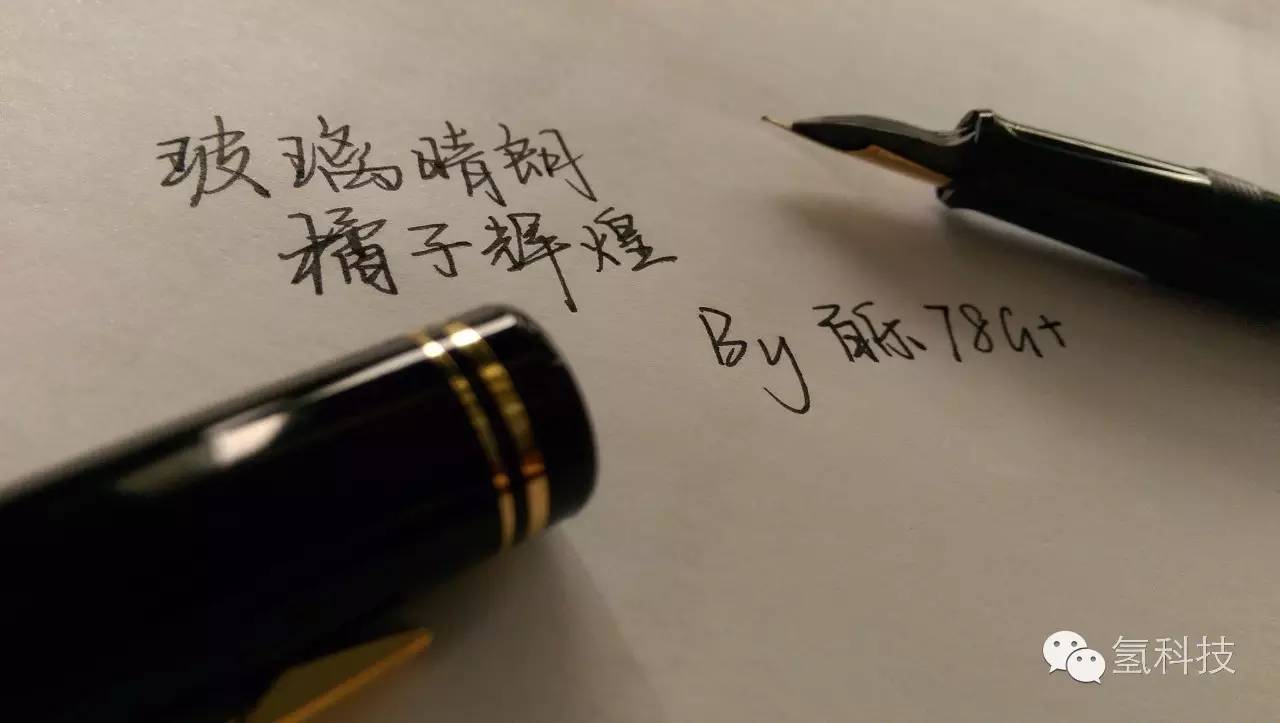 玻璃晴朗
橘子辉煌
By 百乐78G+
氢科技